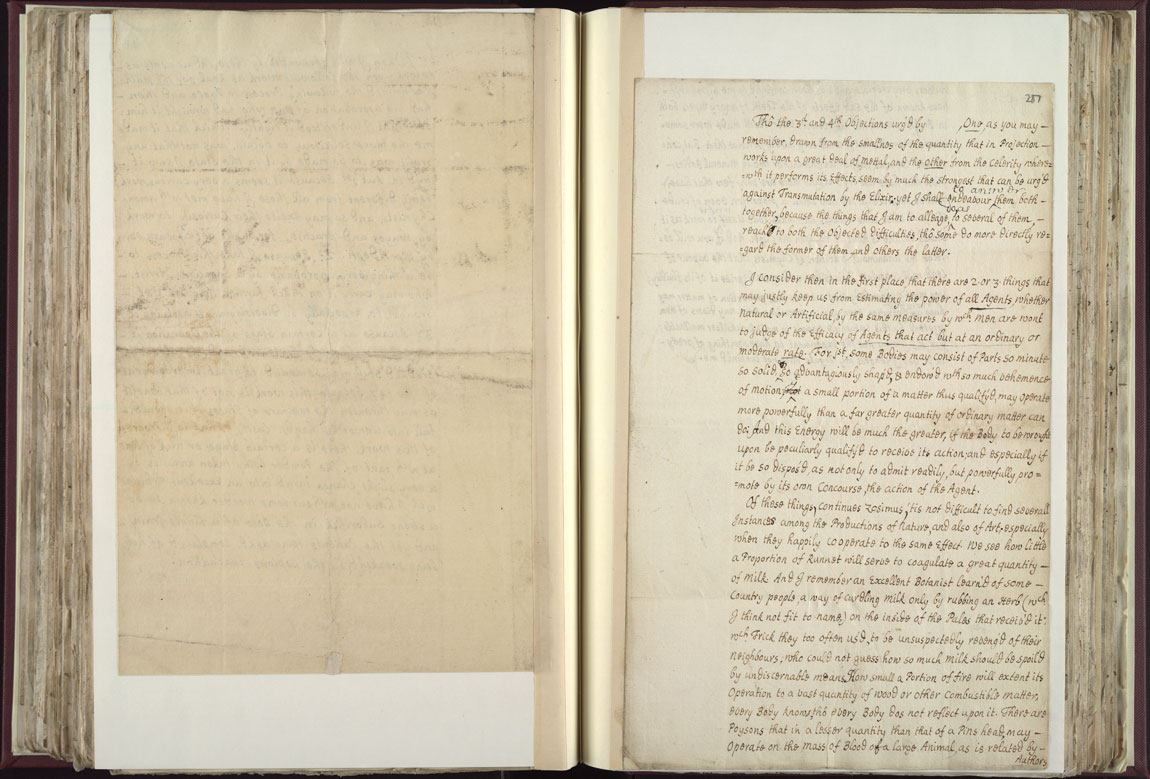 287
Thô the 3ᵈ and 4ᵗʰ Objections urg'd by , One as you may —
remember, drawn from the smallnes of the quantity that in Projection —
works upon a great deal of Metal, and the other from the Celerity where=
=wᵗʰ it performs its Effects, seem by much the strongest that can be urg'd
to answer
against Transmutation by the Elixir, yet I shall endeavour them both
together, because the things that I am to alleage, to several of them, —
reach to both the Objected difficulties, thô some do more directly re=
=gard the former of them and others the latter.
I consider then in the first place, that there are 2 or 3 things that
may justly keep us from Estimating the power of all Agents, whether
Natural or Artificial, by the same measures by wᶜʰ Men are wont
to judge of the Efficacy of Agents, that act but at an ordinary or
moderate rate. For 1ˢᵗ, some Bodies may consist of Parts so minute
so solid, so advantagiously shap'd, & endow'd wᵗʰ so much vehemence
of motion, a small portion of a matter thus qualify'd, may operate
more powerfully than a far greater quantity of ordinary matter can
do; And this Energy will be much the greater, if the Body to be wrought
upon be peculiarly qualify'd to receive its action, and especially if
it be so dispos'd, as not only to admit readily, but powerfully pro=
=mote by its own Concourse, the action of the Agent.
Of these things, continues Zosimus, 'tis not difficult to find severall
Instances among the Productions of Nature, and also of Art, especially
when they happily cooperate to the same Effect. We see how little
a Proportion of Runnet will serve to coagulate a great quantity —
of Milk. And I remember an Excellent Botanist learn'd of some —
Country people, a way of curdling Milk only by rubbing an Herb (wᶜʰ
I think not fit to name) on the inside of the Pales that receiv'd it:
wᶜʰ Trick they too often us'd, to be unsuspectedly reveng'd of their
Neighbours, who could not guess how so much Milk should be spoil'd
by undiscernable means. How small a Portion of fire will extent its
Operation to a vast quantity of wood or other Combustible matter,
every Body knows, thô every Body dos not reflect upon it. There are
Poysons that in a lesser quantity than that of a Pins head, may —
Operate on the mass of Blood of a large Animal, as is related by —
Authors